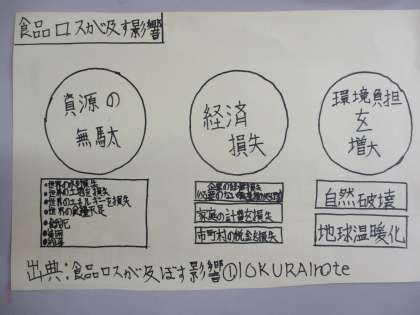 食品ロスが及す影響
資源の
無駄
経済
損失
環境負担
を
増大
●世界の水を損失
●世界の土地を損失
●世界のエネルギーを損失
●世界の食糧不足
企業の経済損失
家庭の計費を損失
市町村の税金を損失
自然破壊
地球温暖化
出典:食品ロスが及ぼす影響①|OKURA|note